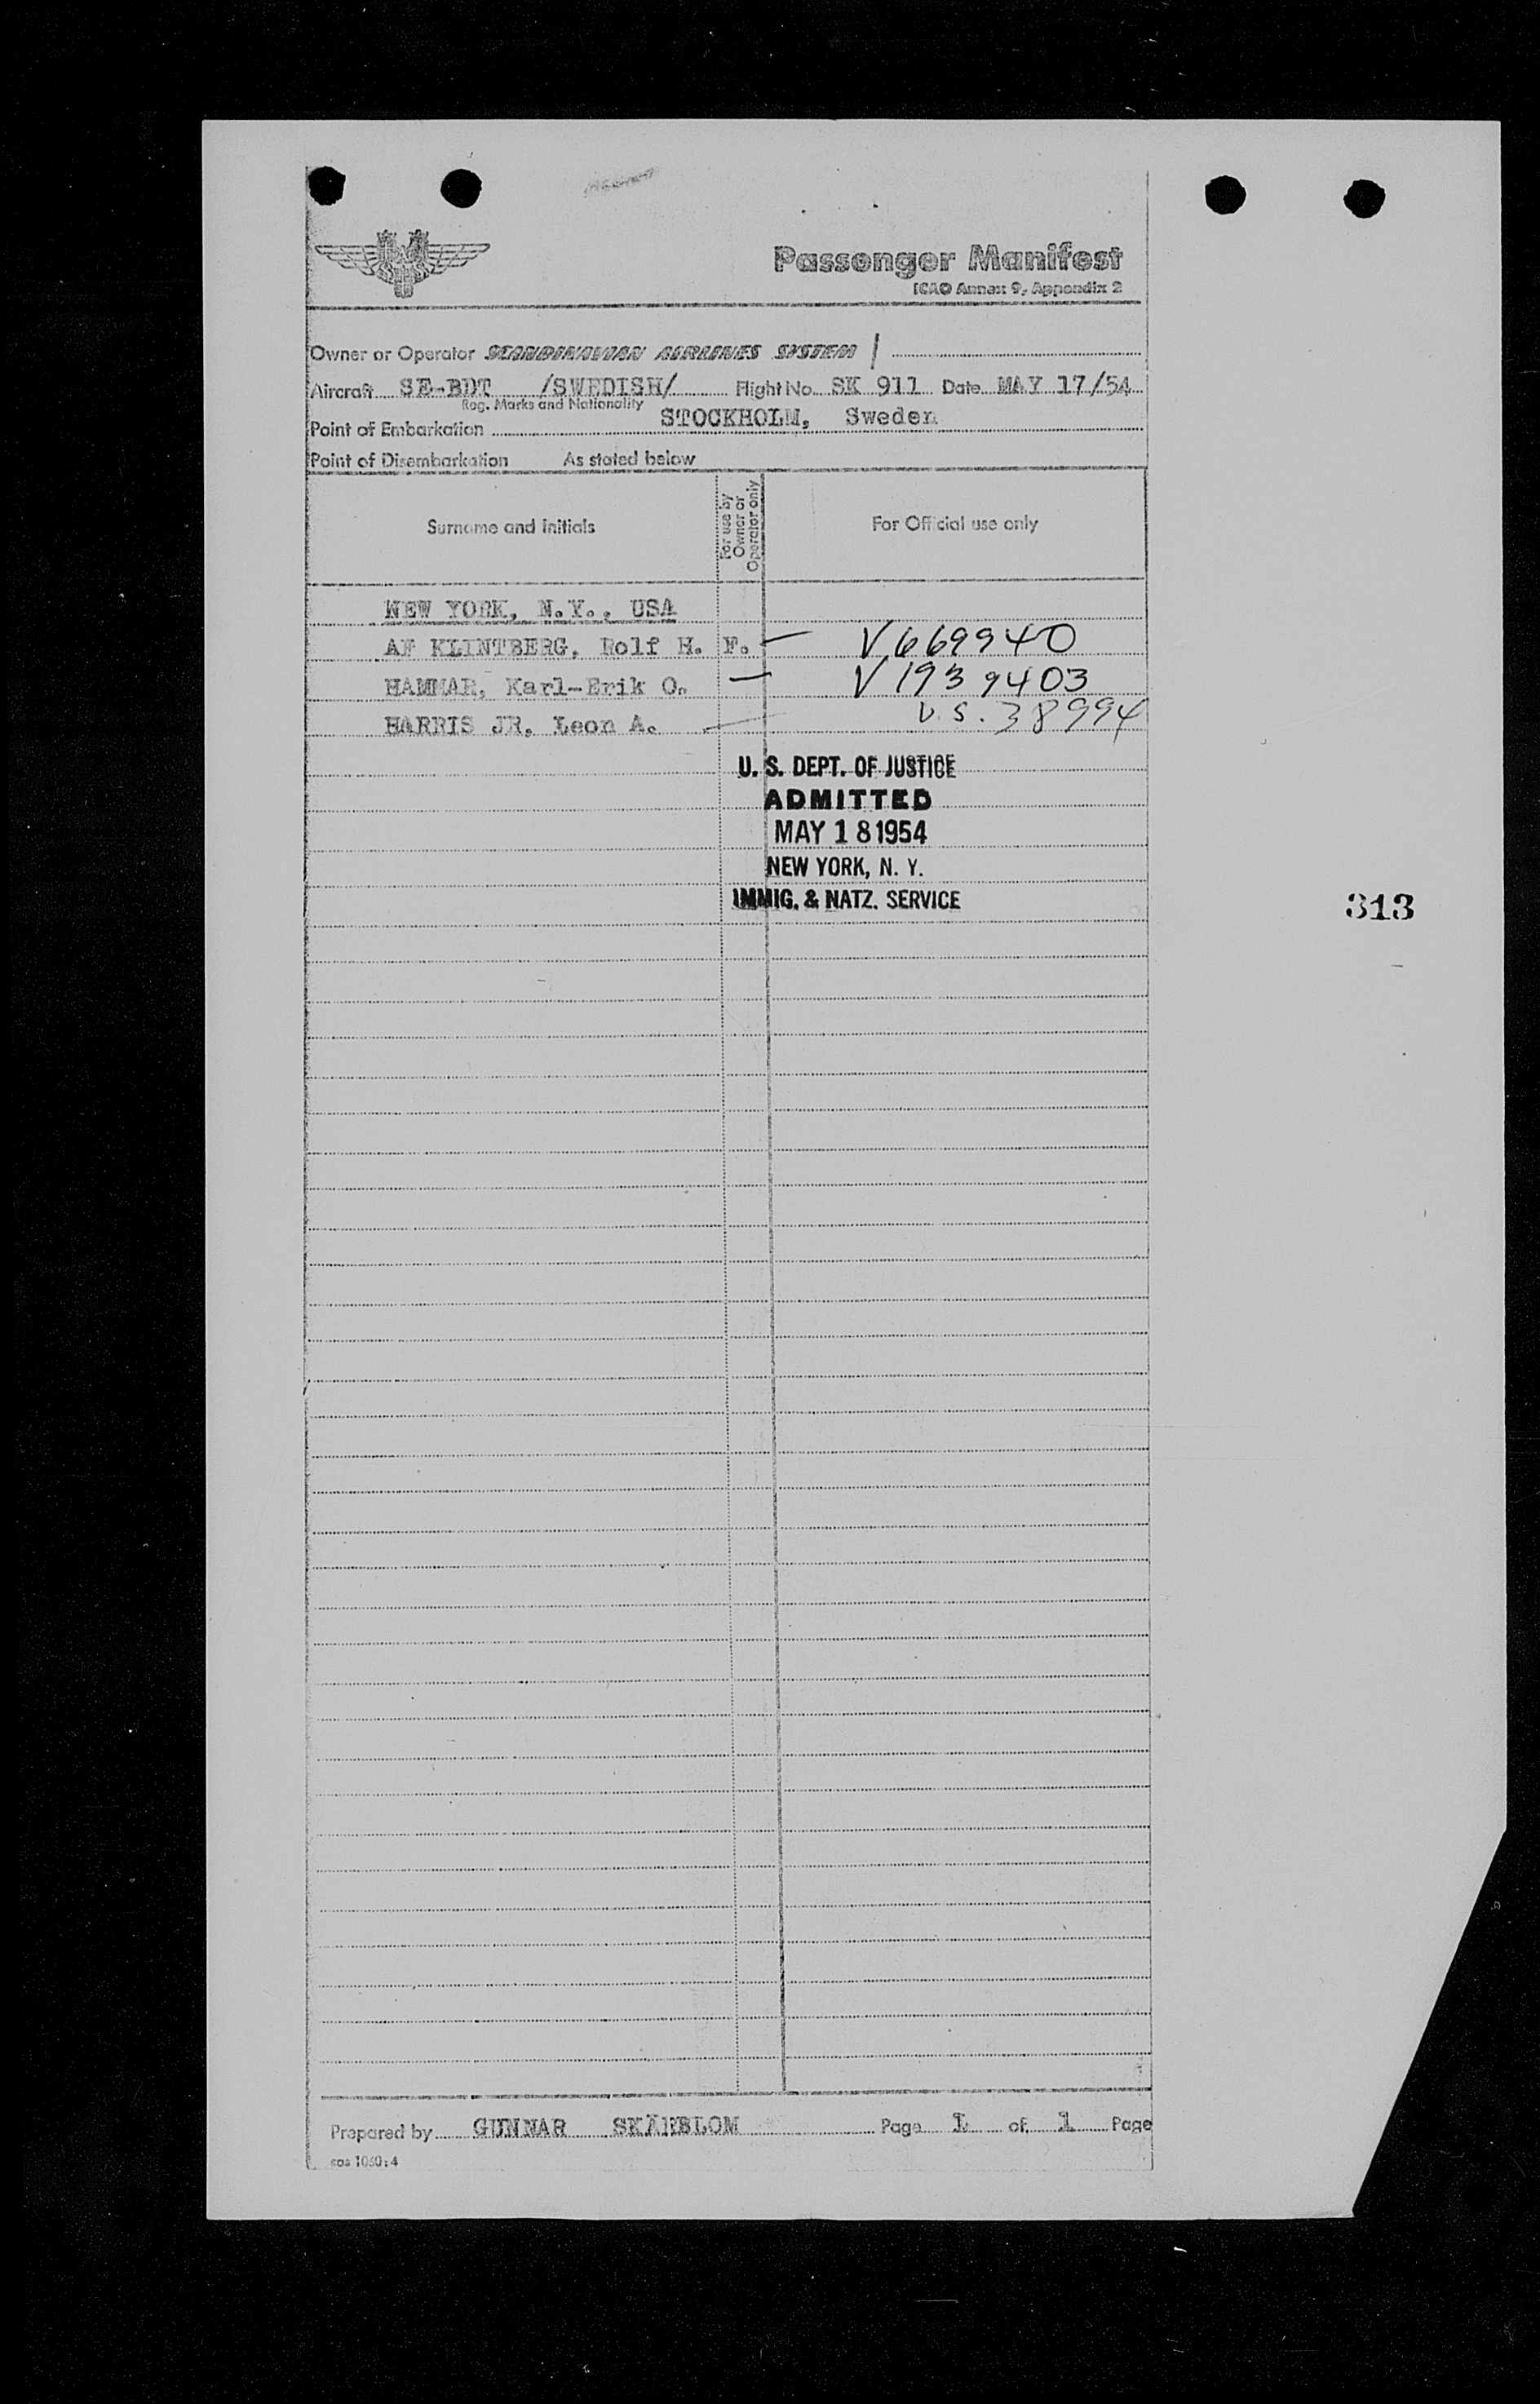 Passenger Manifest
ICAO Annex 9, Appendix 2
Owner or Operator SCANDINAVIAN AIRLINES SYSTEM
Aircraft SE-BDT /SWEDISH/ Flight No. SK 911 Date MAY 17/54
Reg. Marks and Nationality
Point of Embarkation STOCKHOLM, Sweden
Point of Disembarkation As stated below
Surname and initials
For use by Owner or Operator only
For Official use only
NEW YORK, N.Y., USA
AF KLINTBERG, Rolf H. F. — V 669940
HAMMAR, Karl-Erik O. — V 1939403
HARRIS JR, Leon A. — U.S. 38994
U. S. DEPT. OF JUSTICE
ADMITTED
MAY 18 1954
NEW YORK, N. Y.
IMMIG. & NATZ. SERVICE
313
Prepared by GUNNAR SKÄRBLOM Page 1 of 1 Page
sas 1050:4